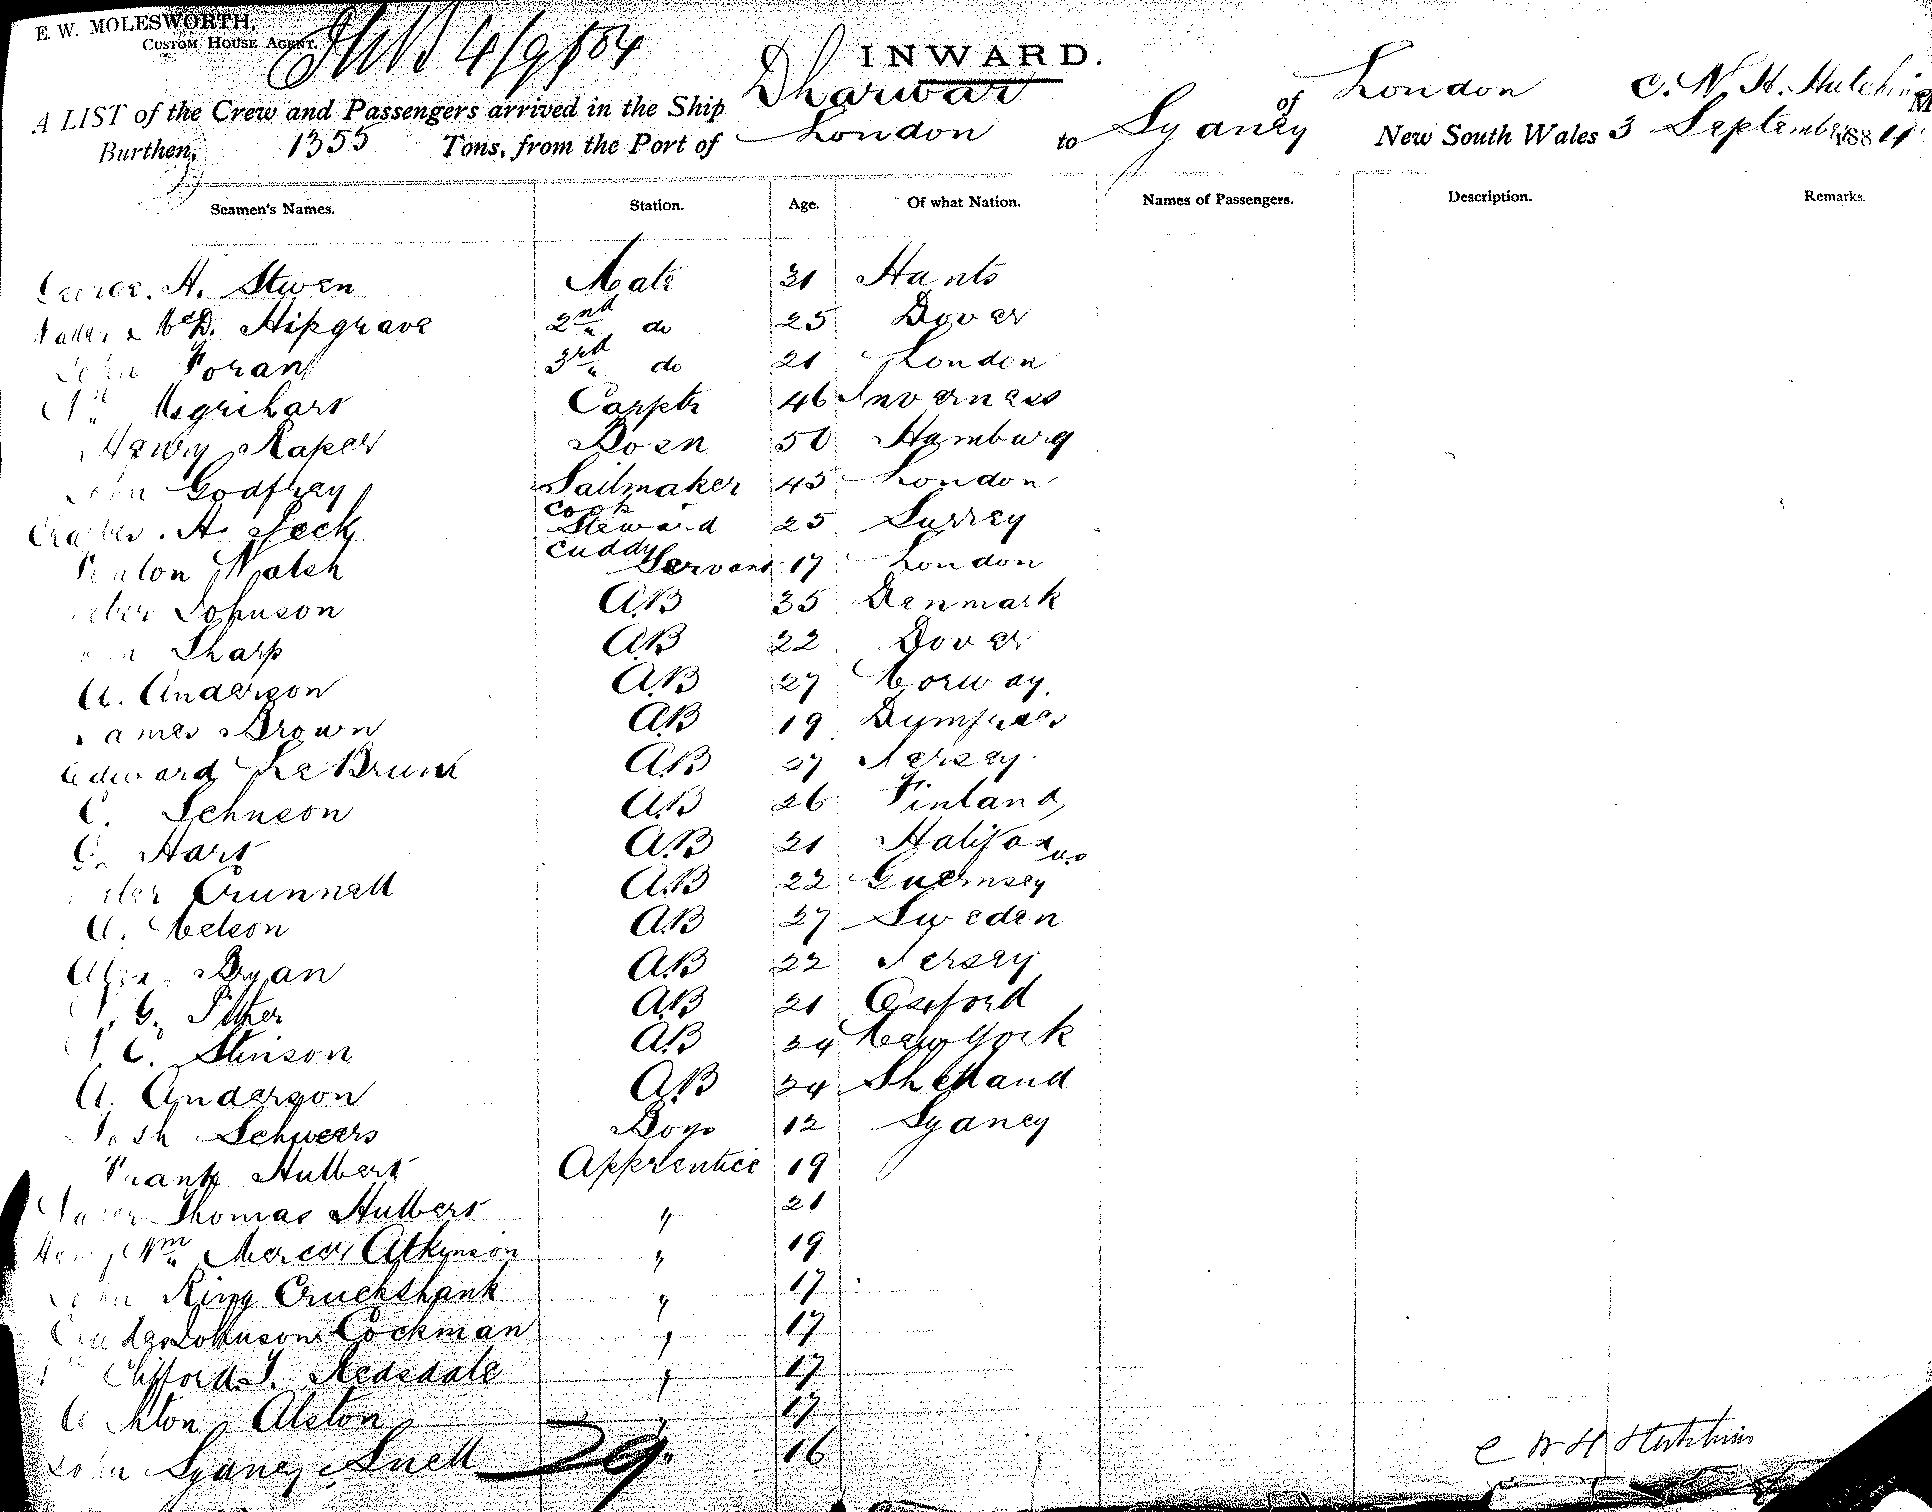 E. W. MOLESWORTH,
CUSTOM HOUSE AGENT.
4/9/84
INWARD.
A LIST of the Crew and Passengers arrived in the Ship Dharwar of London C. N. H. Hutchins
Burthen, 1355 Tons, from the Port of London to Sydney New South Wales 3 September 1884
Seamen's Names. Station. Age. Of what Nation. Names of Passengers. Description. Remarks.
George. H. Stwen Mate 31 Hants
Hipgrave 2nd do 25 Dover
John Foran 3rd do 21 London
Carptr 46 Inverness
Henry Raper Bosn 50 Hamburg
John Godfrey Sailmaker 45 London
Charles. A Jeck Cook Steward 25 Surrey
Walsh Cuddy Servant 17 London
Johnson A.B 35 Denmark
Sharp A.B 22 Dover
A. Anderson A.B 27 Norway.
James Brown A.B 19 Dumfries
Edward Le Brun A.B 27 Jersey
C. Schneon A.B 26 Finland
Hart A.B 21 Halifax NS
Crunnell A.B 22 Guernsey
A. Nelson A.B 27 Sweden
Bryan A.B 22 Jersey
G. Pither A.B 21 Oxford
C. Stinson A.B 24 New York
A. Anderson A.B 24 Shetland
Schweers Boy 12 Sydney
Frank Hulbert Apprentice 19
Thomas Hulbert " 21
Wm Mercer Atkinson " 19
John King Cruckshank " 17
Johnson Cockman " 17
Clifford. J. Redsdale " 17
Alston " 17
John Sydney Snell 29. 16
C N H Hutchins